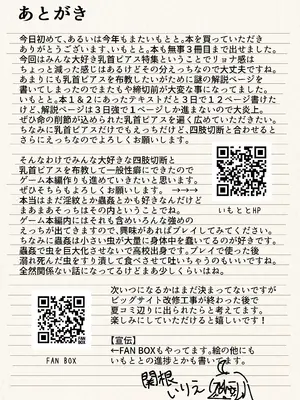 あとがき
今日初めて、あるいは今年もまたいもとと。本を買っていただき
ありがとうございます、いもとと。本も無事３冊目まで出せました。
今回はみんな大好き乳首ピアス特集ということでリョナ感は
ちょっと減った感じはあるけどその分えっちなので大丈夫ですね。
あまりにも乳首ピアスを布教したいがために謎の解説ページを
書いてしまったのでまたも今締切前が大変な事になってました。
いもとと。本１＆２にあったテキストだと３日で１２ページ書けた
けど、解説ページは３日強で１ページしか進まないので大炎上。
ぜひ命の削節が込められた乳首ピアスを遍く広めていただきたい。
ちなみに乳首ピアスだけでもえっちだけど、四肢切断と合わせると
さらにえっちなのでよろしくお願いします。
そんなわけでみんな大好きな四肢切断と
乳首ピアスを布教して一般性癖にできたので
ゲーム本編作りも進めていきたいと思います。
ぜひそちらもよろしくお願いします。 →→→
本当はまだ淫紋とか蟲姦とかも好きなんだけど
まあまあそっちはその内ということでね。
いもととHP
ゲーム本編内にはそれも含めいろんな強めの
えっちが出てきますので、興味があればプレイしてみてください。
ちなみに蟲姦は小さい虫が大量に身体中を蠢いてるのが好きです。
蟲姦で虫を巨大化させないで高校出身です。プレイで使った後
溺れ死んだ虫をすり潰して食べさせて吐いちゃうのもいいですね。
全然関係ない話になってるけどまあ少しくらいはね。
次いつになるかはまだ決まってないですが
ビッグサイト改修工事が終わった後で
夏コミ辺りに出られたらと考えてます。
楽しみにしていただけると嬉しいです！
【宣伝】
←FAN BOXもやってます。絵の他にも
いもととの進捗とかも書いてます。
FAN BOX
関根
いりえ